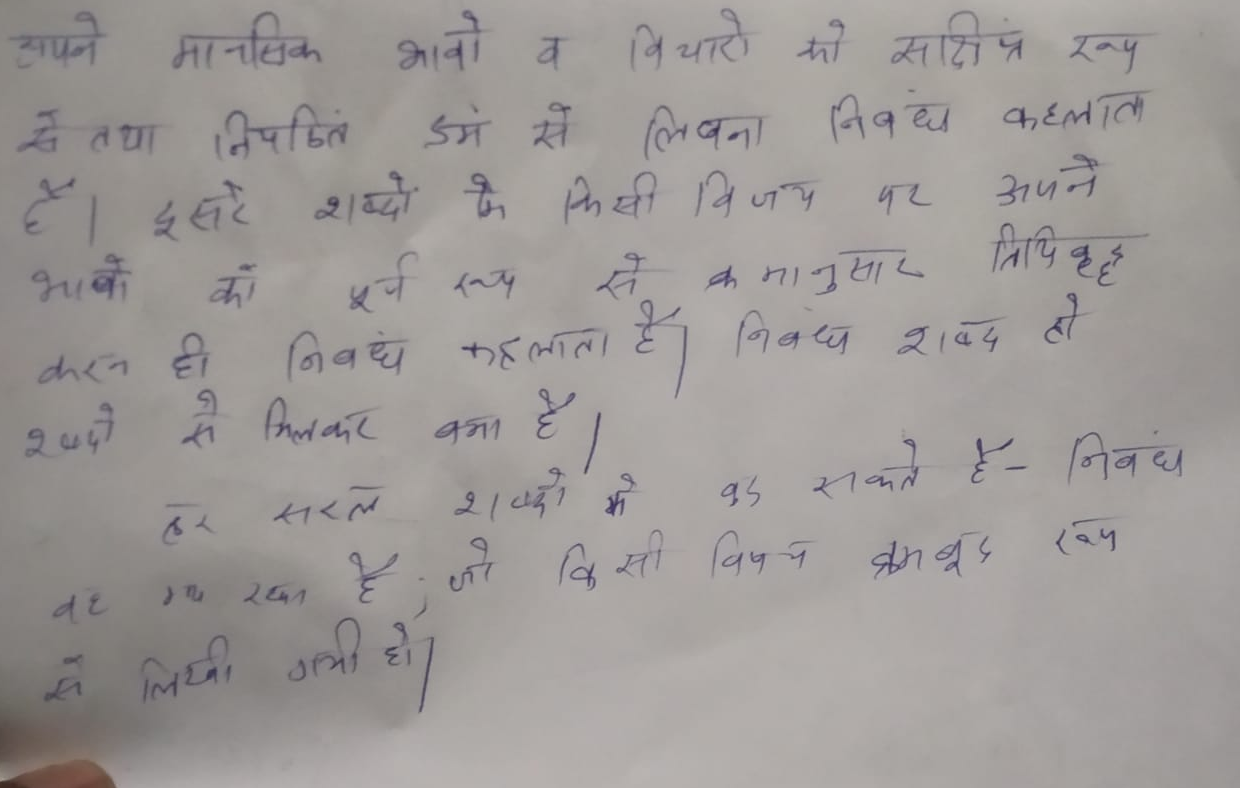 अपने मानसिक भावो व विचारो को सक्षिप्त रूप
से तथा नियंत्रित ढंग से लिखना निबंध कहलाता
है। दूसरे शब्दों में किसी विजय पर अपने
भावो को पूर्ण रूप से क्रमानुसार लिपिबद्ध
करन ही निबंध कहलाता है। निबंध शब्द दो
शब्दो से मिलकर बना है।
हर सरल शब्दो मे कह सकते हैं - निबंध
वह गद्य रचना है; जो किसी विषय क्रमबद्ध रूप
से लिखी गयी हो।